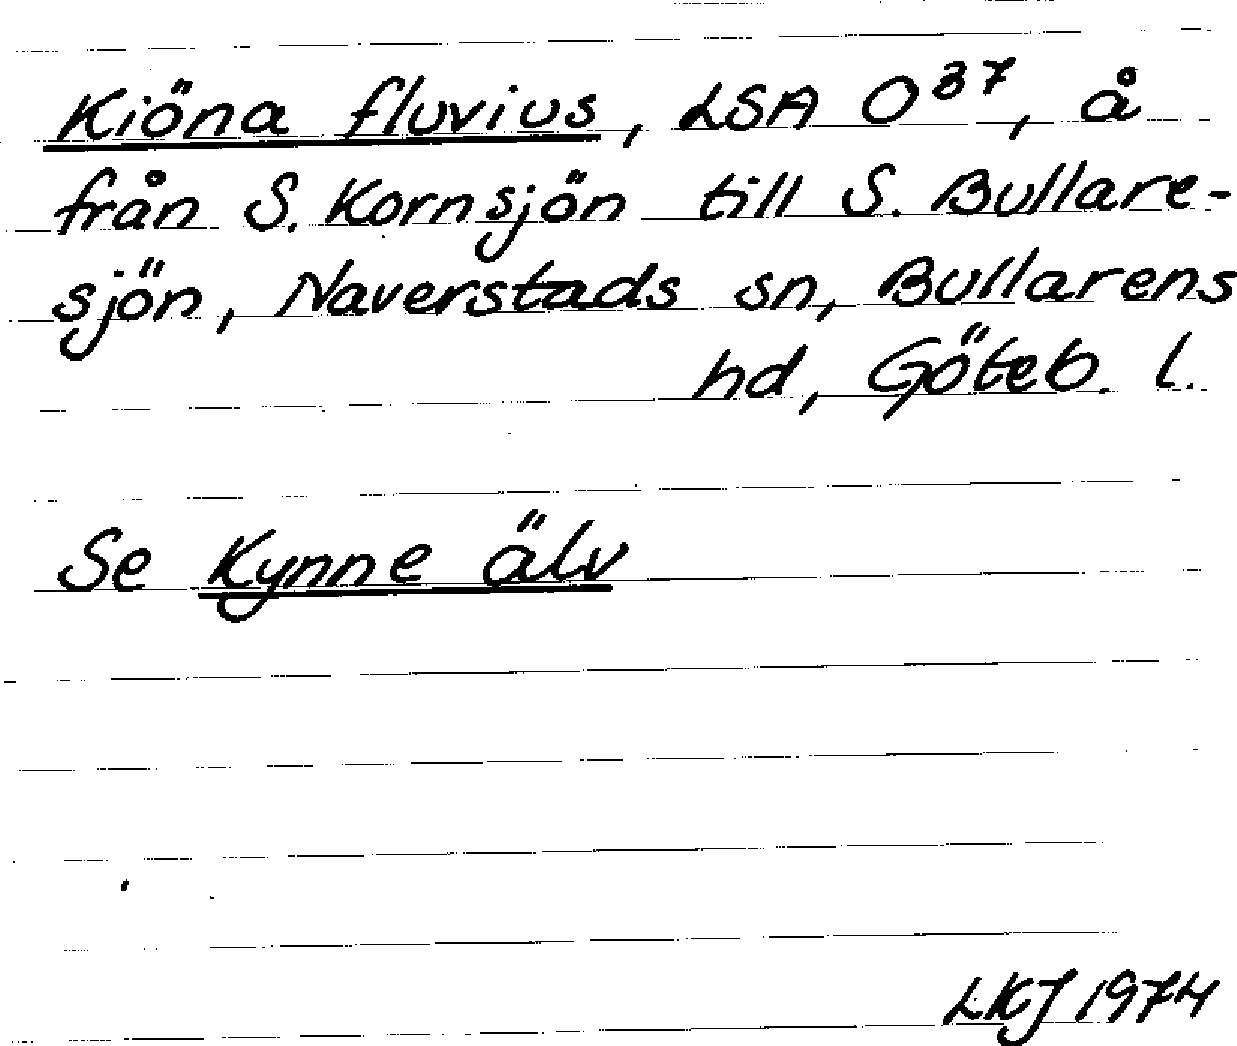 Kiöna fluvius, LSA O³⁷, å
från S. Kornsjön till S. Bullare-
sjön, Naverstads sn, Bullarens
hd, Göteb. l.
Se Kynne älv
LKJ 1974